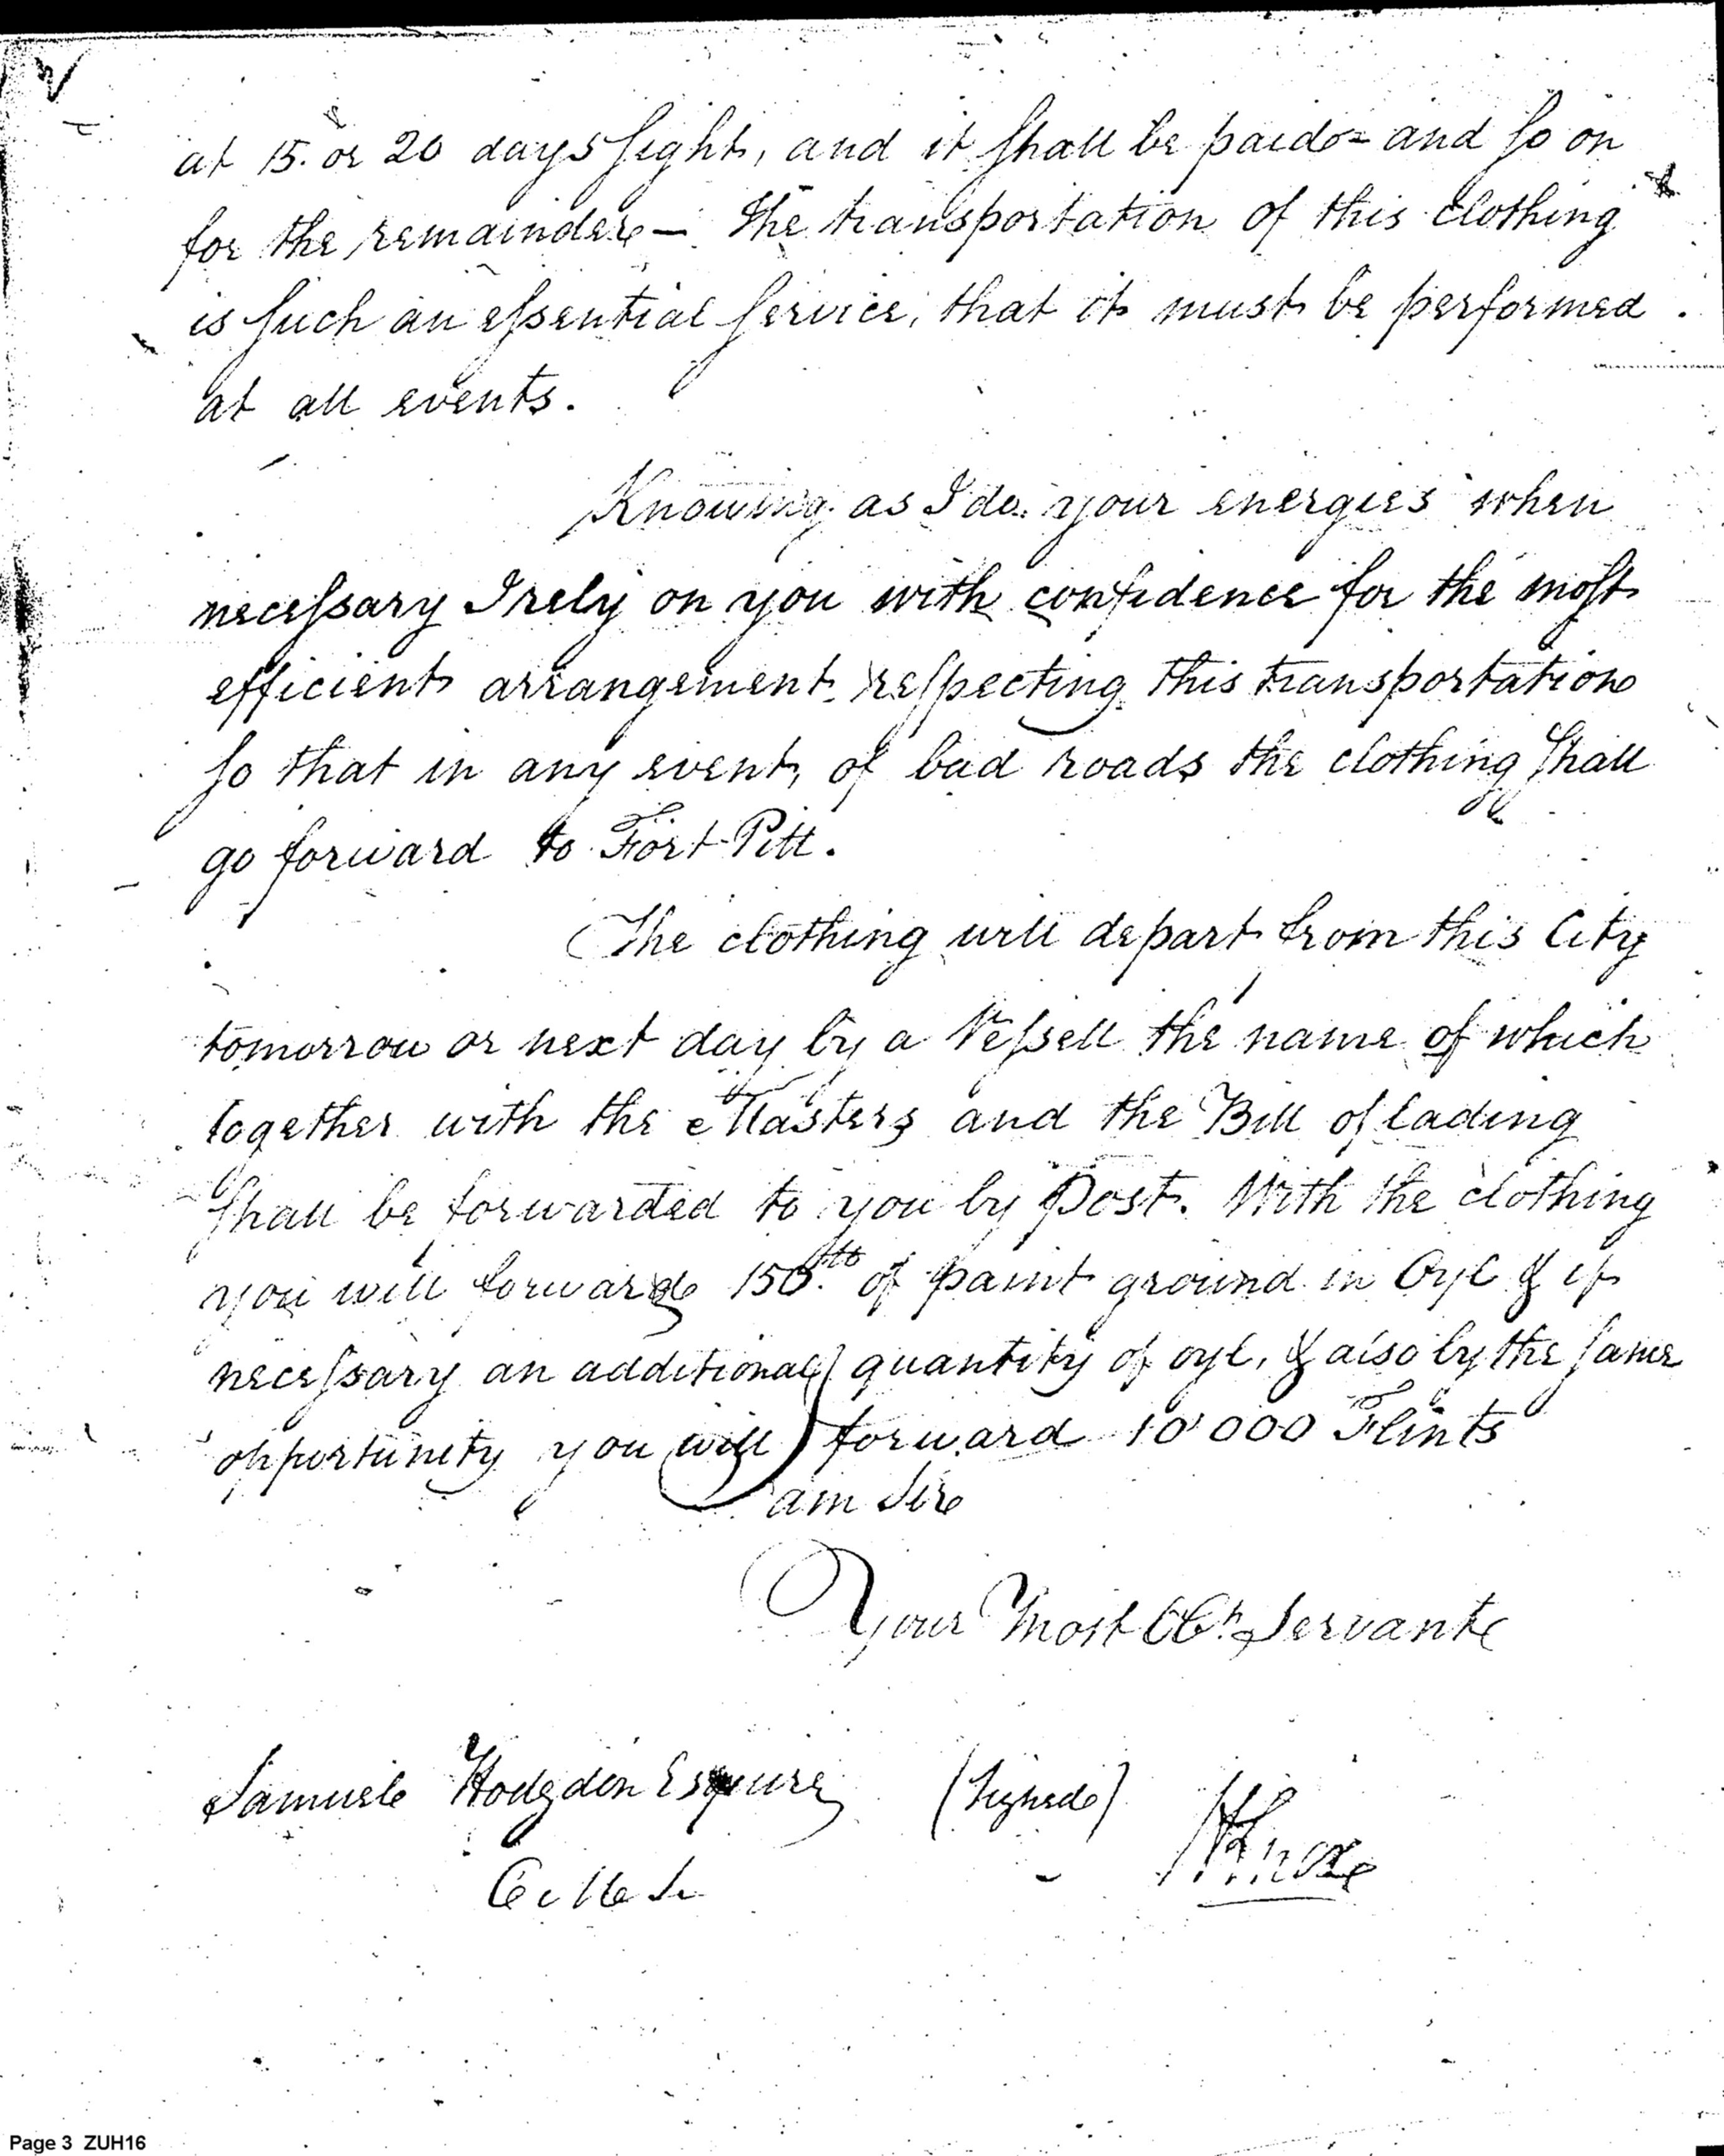 at 15. or 20 days sight, and it shall be paid = and so on
for the remainder — The transportation of this clothing
is such an essential service, that it must be performed
at all events.
Knowing as I do your energies when
necessary I rely on you with confidence for the most
efficient arrangement respecting this transportation
so that in any event, of bad roads the clothing shall
go forward to Fort Pitt.
The clothing will depart from this City
tomorrow or next day by a Vessell the name of which
together with the Masters and the Bill of lading
shall be forwarded to you by Post. With the clothing
you will forward 150 lb of paint ground in Oyl & if
necessary an additional quantity of oyl, & also by the same
opportunity you will forward 10'000 Flints
I am Sir
Your Most Obt. Servant
Samuel Hodgdon Esquire (Signed) HKnox
Page 3 ZUH16